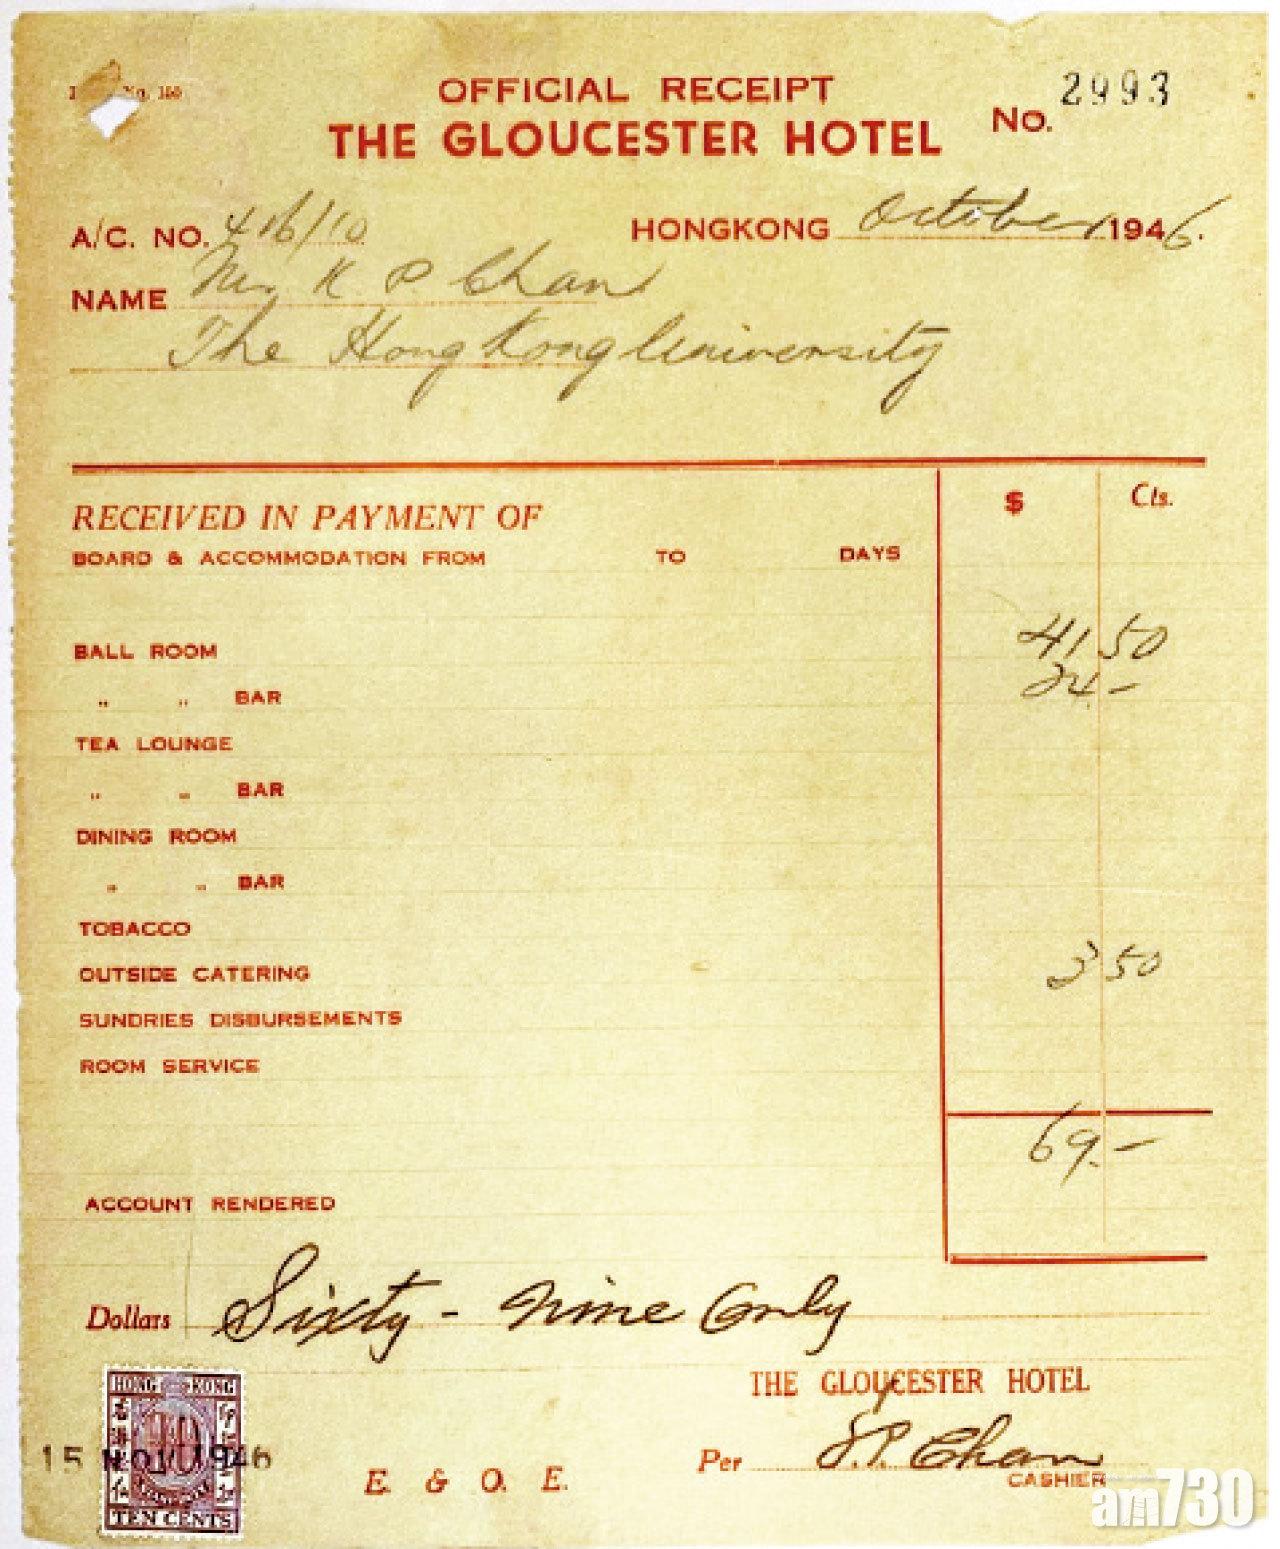 No. 160
OFFICIAL RECEIPT
No. 2993
THE GLOUCESTER HOTEL
A/C. NO. 416/10 HONGKONG October 1946.
NAME Mr. K P Chan
The Hong Kong University
$ Cts.
RECEIVED IN PAYMENT OF
BOARD & ACCOMMODATION FROM TO DAYS
BALL ROOM 41 50
„ „ BAR 24 -
TEA LOUNGE
„ „ BAR
DINING ROOM
„ „ BAR
TOBACCO
OUTSIDE CATERING 3 50
SUNDRIES DISBURSEMENTS
ROOM SERVICE
69. -
ACCOUNT RENDERED
Dollars Sixty - Nine Only
THE GLOUCESTER HOTEL
HONG KONG
15 NOV 1946
TEN CENTS
E. & O. E.
Per S.P. Chan
CASHIER
am730